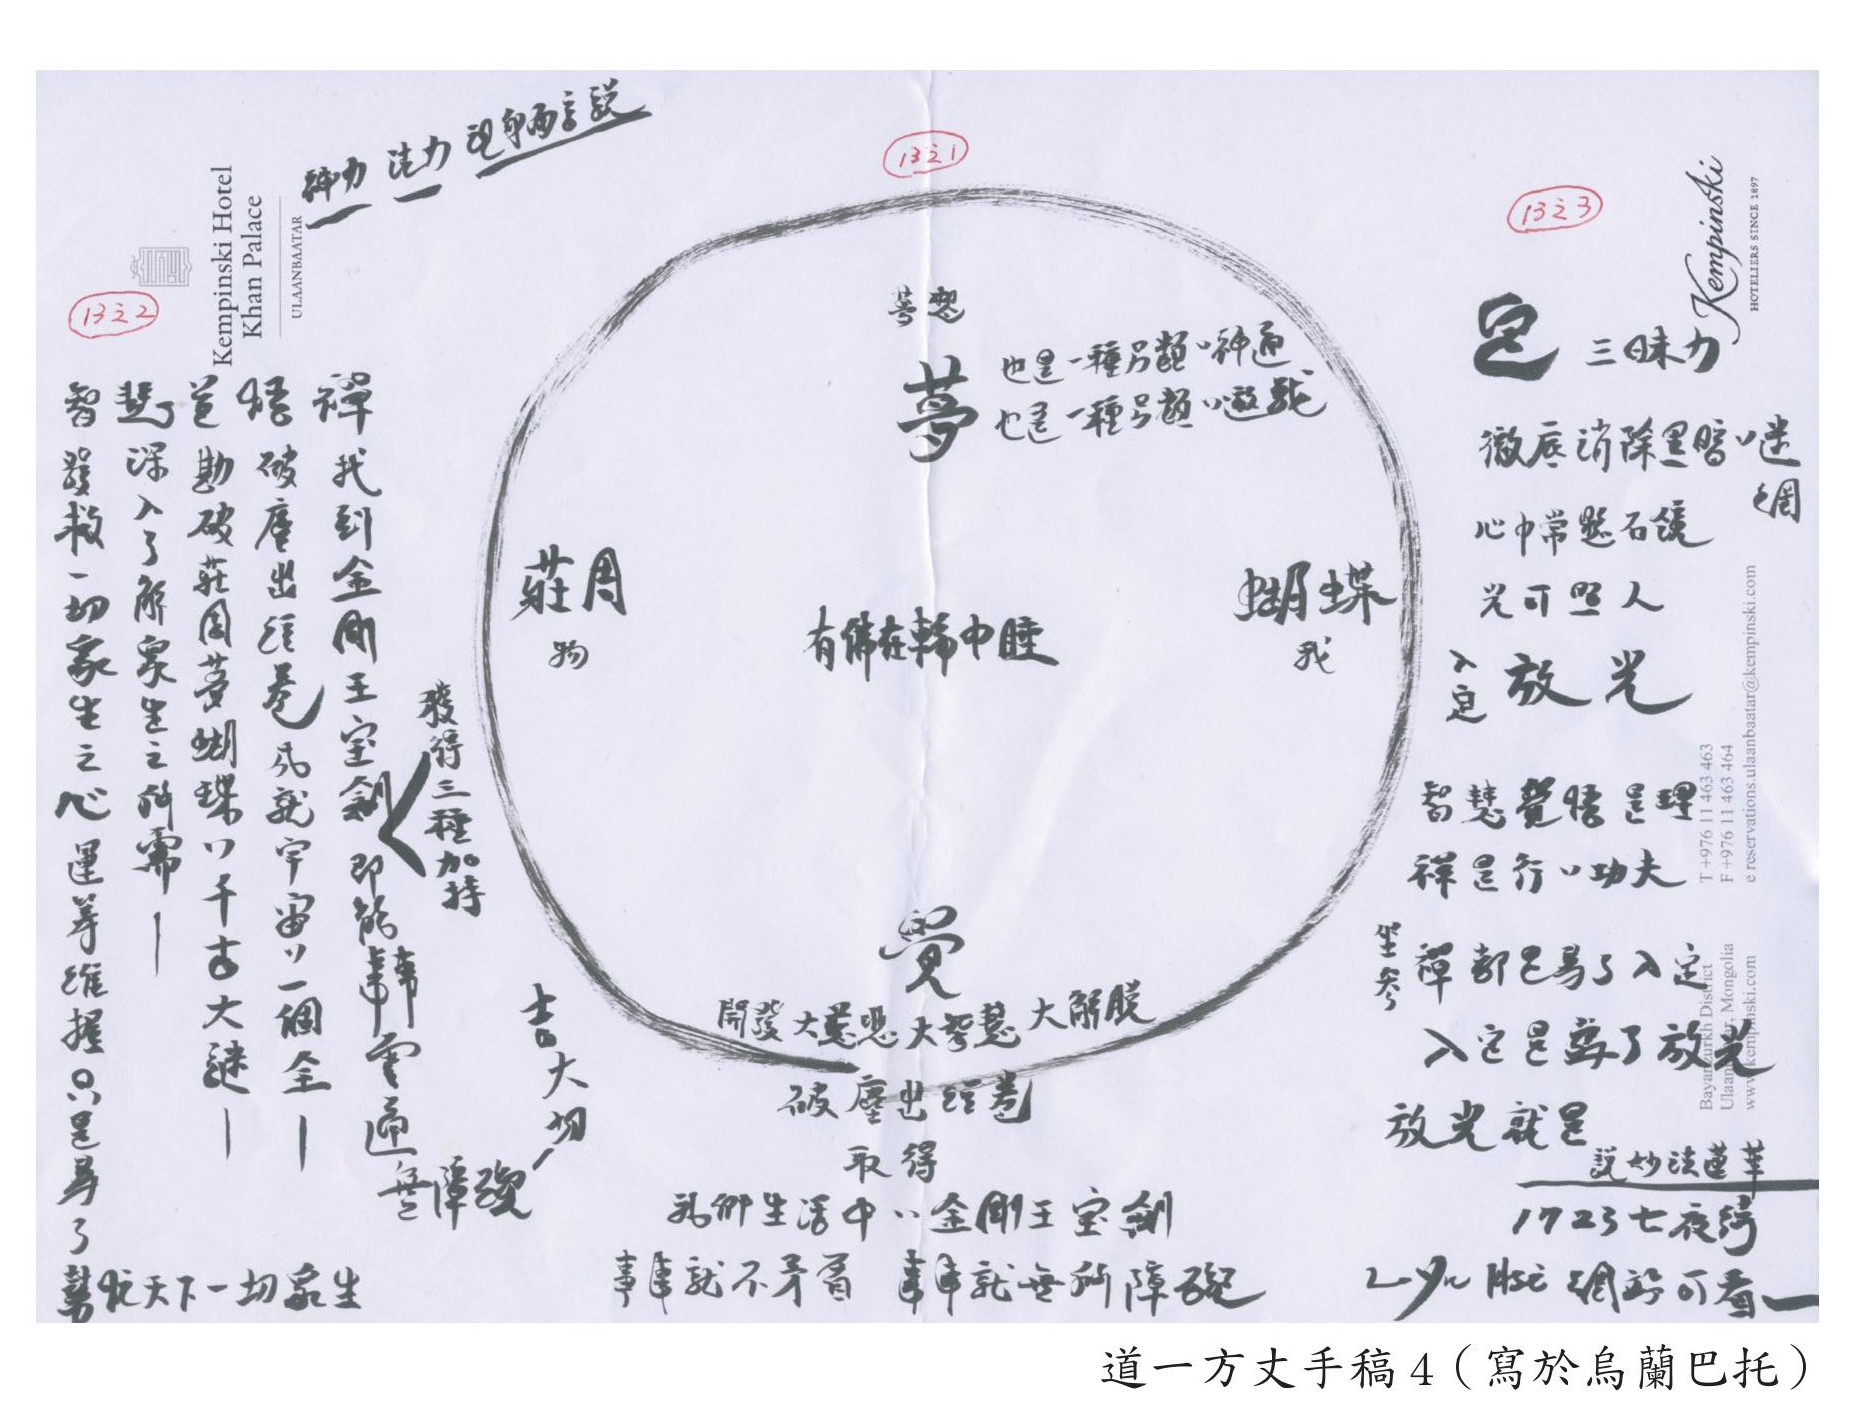 神力 法力 現身而言說
13之1
善惡
夢
也是一種另類的神通
也是一種另類的啟program
莊周
物
有佛在轎中睡
蝴蝶
我
覺
開發大慈悲大智慧大解脫
破塵出經卷
取得
現御生活中的金剛王宝劍
事事就不矛盾 事事就無所障礙
13之2
Kempinski Hotel
Khan Palace
ULAANBAATAR
禪 找到金剛王宝劍 即能事事靈通無障礙
獲得三種加持
吉大切
悟 破塵出經卷成就宇宙的一個全
道 勘破莊周夢蝴蝶的千古大謎
慧 深入了解眾生之所需
智 發救一切眾生之心 運籌維握只是為了
幫忙天下一切眾生
13之3
Kempinski
HOTELIERS SINCE 1897
定 三昧力
徹底消除黑暗的迷網
心中常懸石鏡
光可照人
入定 放光
智慧覺悟是理
禪是行的功夫
坐參 禪都是為了入定
入定是為了放光
放光就是
說妙法蓮華
T +976 11 463 463
F +976 11 463 464
e reservations.ulaanbaatar@kempinski.com
Bayanzurkh District
Ulaanbaatar, Mongolia
www.kempinski.com
道一方丈手稿4（寫於烏蘭巴托）